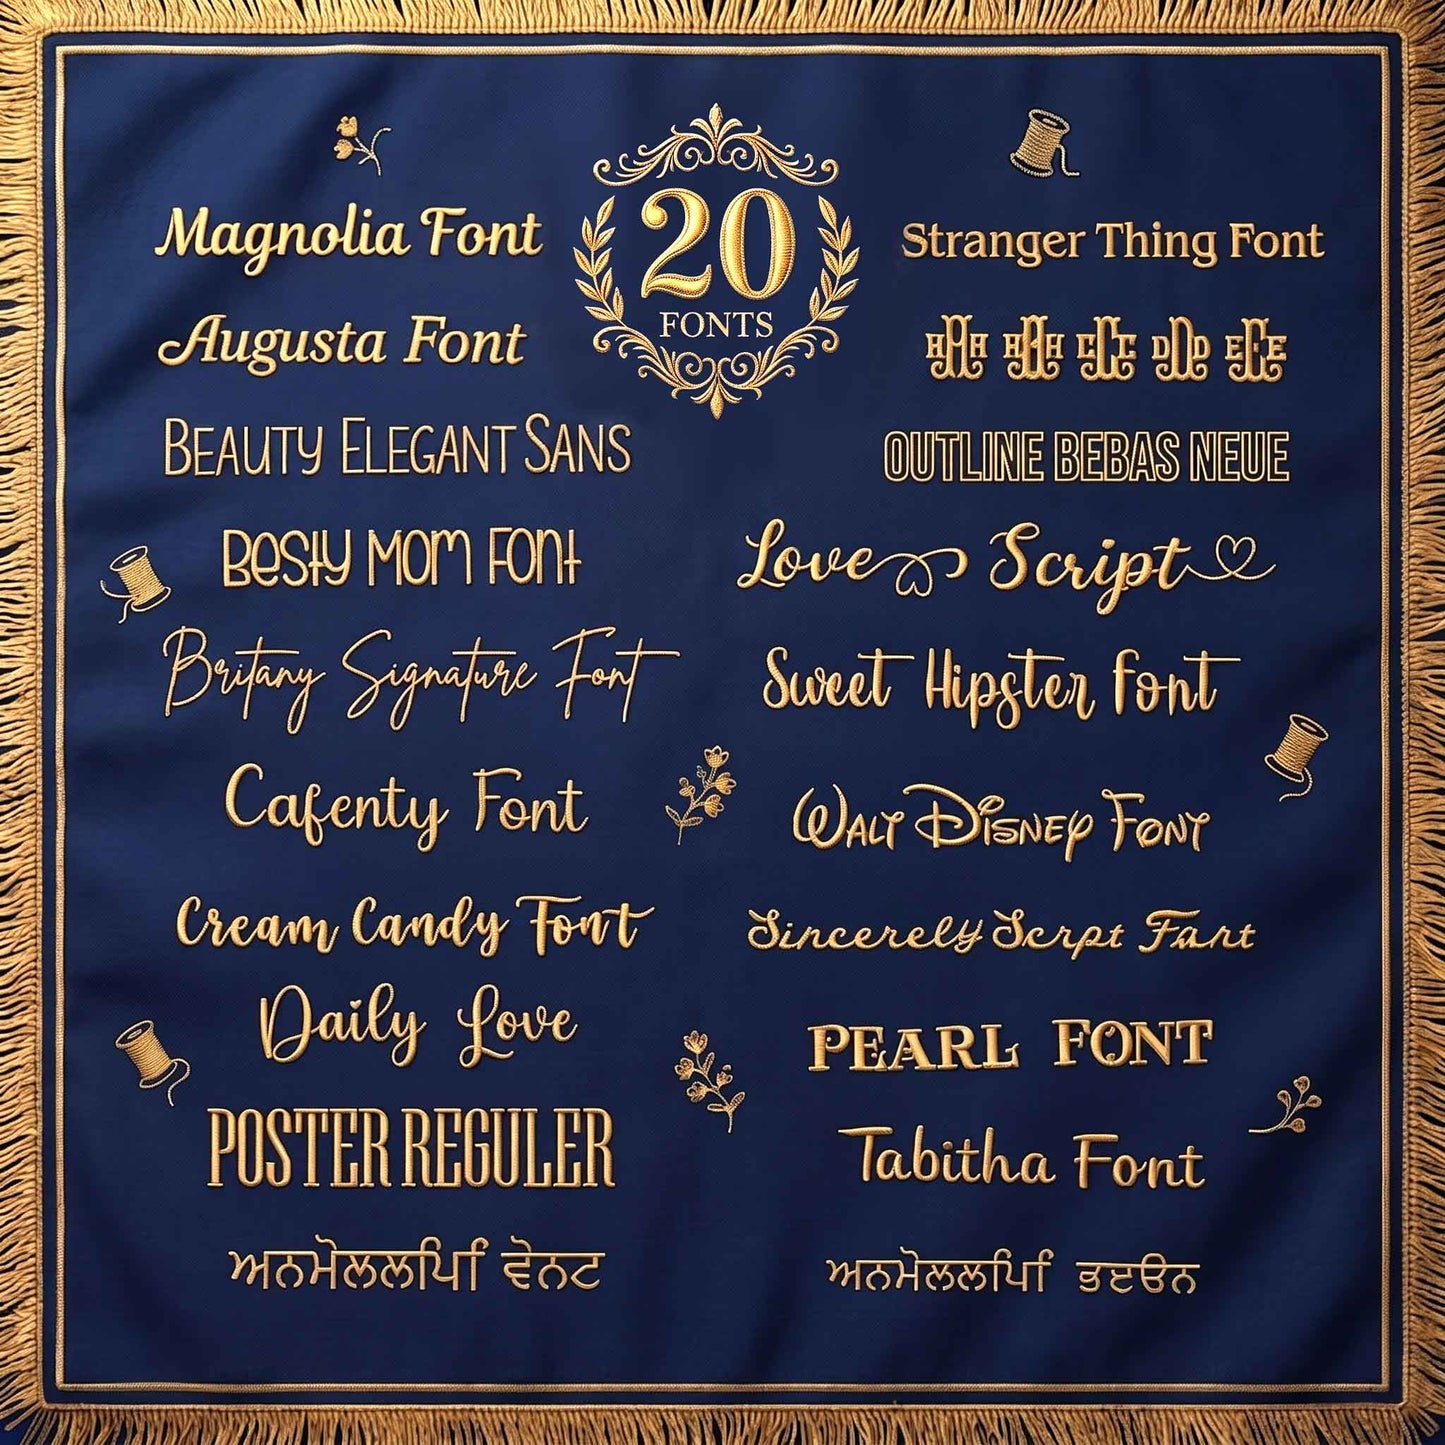 20
FONTS
Magnolia Font
Stranger Thing Font
Augusta Font
AAA BBB CCC DDD EEE
BEAUTY ELEGANT SANS
OUTLINE BEBAS NEUE
Besty Mom Font
Love Script
Britany Signature Font
Sweet Hipster Font
Cafenty Font
Walt Disney Font
Cream Candy Font
Sincerely Script Font
Daily Love
PEARL FONT
POSTER REGULER
Tabitha Font
ਅਨਮੋਲਲਿਪਿ ਵੋਨਟ
ਅਨਮੋਲਲਿਪਿ ਭੲੳਨ